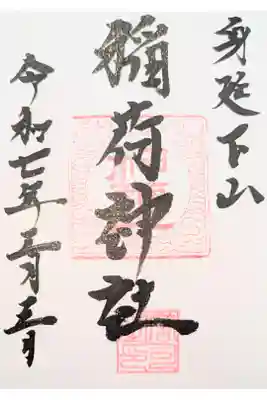 身延下山
稲荷神社
令和七年三月三日